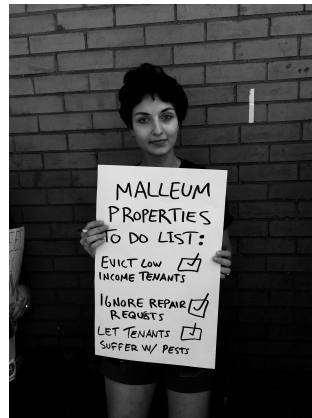 MALLEUM
PROPERTIES
TO DO LIST:
EVICT LOW
INCOME TENANTS
IGNORE REPAIR
REQUESTS
LET TENANTS
SUFFER W/ PESTS